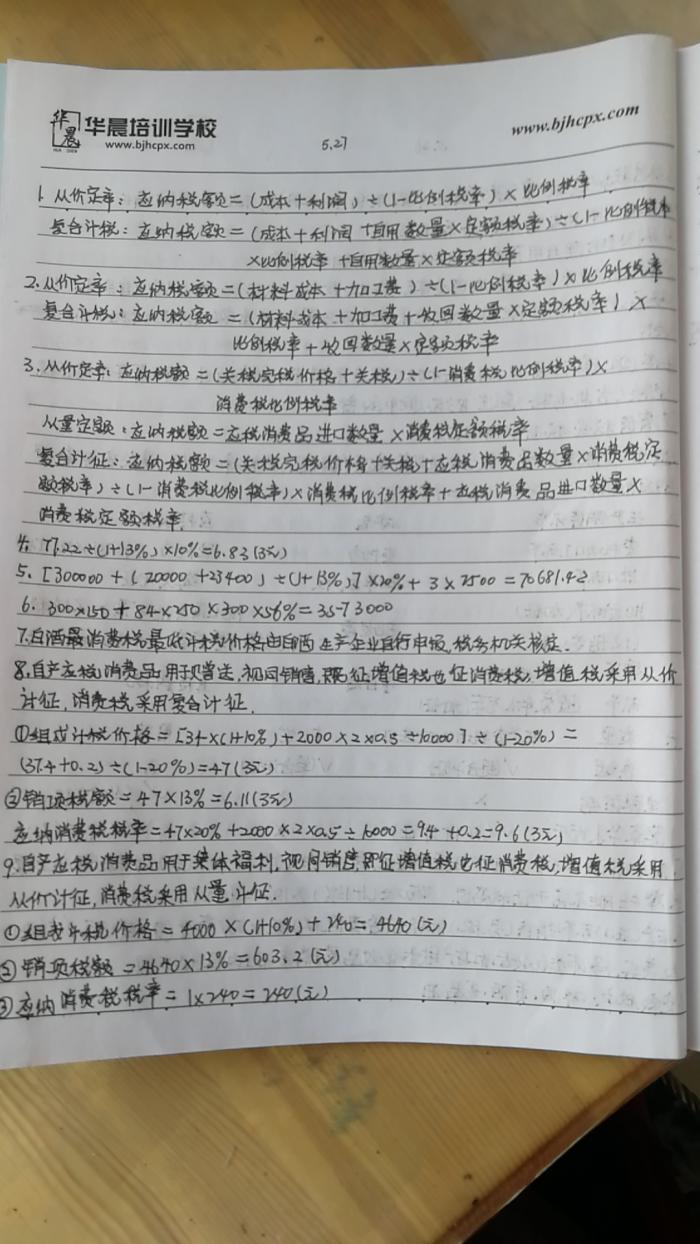 华晨 华晨培训学校
HUA CHEN www.bjhcpx.com
www.bjhcpx.com
5.27
1. 从价定率：应纳税额=(成本+利润)÷(1-比例税率)×比例税率
复合计税：应纳税额=(成本+利润+自用数量×定额税率)÷(1-比例税率
×比例税率+自用数量×定额税率
2.从价定率：应纳税额=(材料成本+加工费)÷(1-比例税率)×比例税率
复合计税：应纳税额=(材料成本+加工费+收回数量×定额税率)×
比例税率+收回数量×定额税率
3.从价定率：应纳税额=(关税完税价格+关税)÷(1-消费税比例税率)×
消费税比例税率
从量定额：应纳税额=应税消费品进口数量×消费税定额税率
复合计征：应纳税额=(关税完税价格+关税+应税消费品数量×消费税定
额税率)÷(1-消费税比例税率)×消费税比例税率+应税消费品进口数量×
消费税定额税率.
4. 77.22÷(1+13%)×10%=6.83(万元)
5. [300000+(20000+23400)÷(1+13%)]×20%+3×2500=70681.42
6. 300×150+84×250×300×56%=3573000
7.白酒最消费税最低计税价格由白酒生产企业自行申报,税务机关核定.
8.自产应税消费品用于赠送,视同销售,既征增值税也征消费税,增值税采用从价
计征,消费税采用复合计征.
①组成计税价格=[34×(1+10%)+2000×2×0.5÷10000]÷(1-20%)=
(37.4+0.2)÷(1-20%)=47(万元)
②销项税额=47×13%=6.11(万元)
应纳消费税税率=47×20%+2000×2×0.5÷10000=9.4+0.2=9.6(万元)
9.自产应税消费品用于集体福利,视同销售,既征增值税也征消费税,增值税采用
从价计征,消费税采用从量计征.
①组成计税价格=4000×(1+10%)+240=4640(元)
②销项税额=4640×13%=603.2(元)
③应纳消费税税率=1×240=240(元)